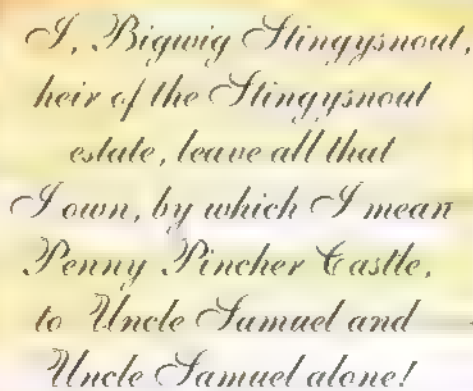 I, Bigwig Stingysnout,
heir of the Stingysnout
estate, leave all that
I own, by which I mean
Penny Pincher Castle,
to Uncle Samuel and
Uncle Samuel alone!